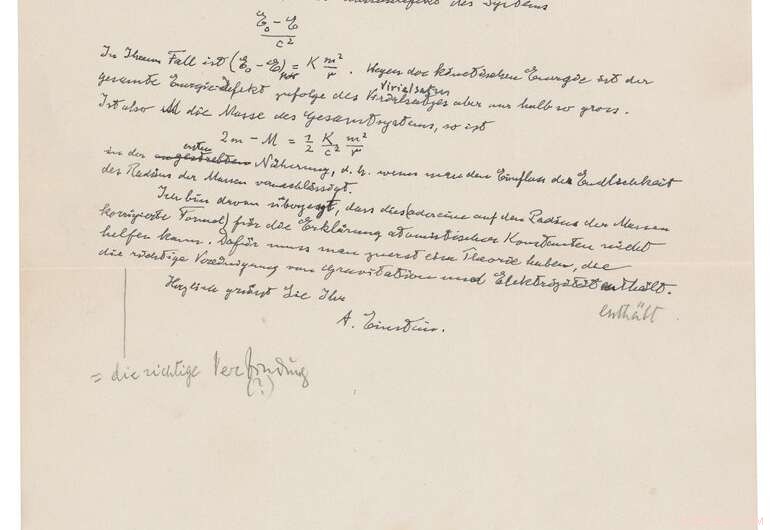 des Systems
ℰ₀ - ℰ / c²
In Ihrem Fall ist (ℰ₀ - ℰ)pot = K m²/r . Wegen der kinetischen Energie ist der
Virialsatzes
gesamte Energiedefekt zufolge des Virialsatzes aber nur halb so gross.
Ist also M die Masse des Gesamtsystems, so ist
2m - M = 1/2 K/c² m²/r
ersten
in der angestrebten Näherung, d. h. wenn man den Einfluss der Endlichkeit
des Radius der Massen vernachlässigt.
Ich bin davon überzeugt, dass dies (oder eine auf den Radius der Massen
korrigierte Formel) für die Erklärung atomistischer Konstanten nicht
helfen kann. Dafür muss man zuerst eine Theorie haben, die
die richtige Vereinigung von Gravitation und Elektrizität enthält.
enthält
Herzlich grüsst Sie Ihr
A. Einstein.
= die richtige Verbindung
(?)